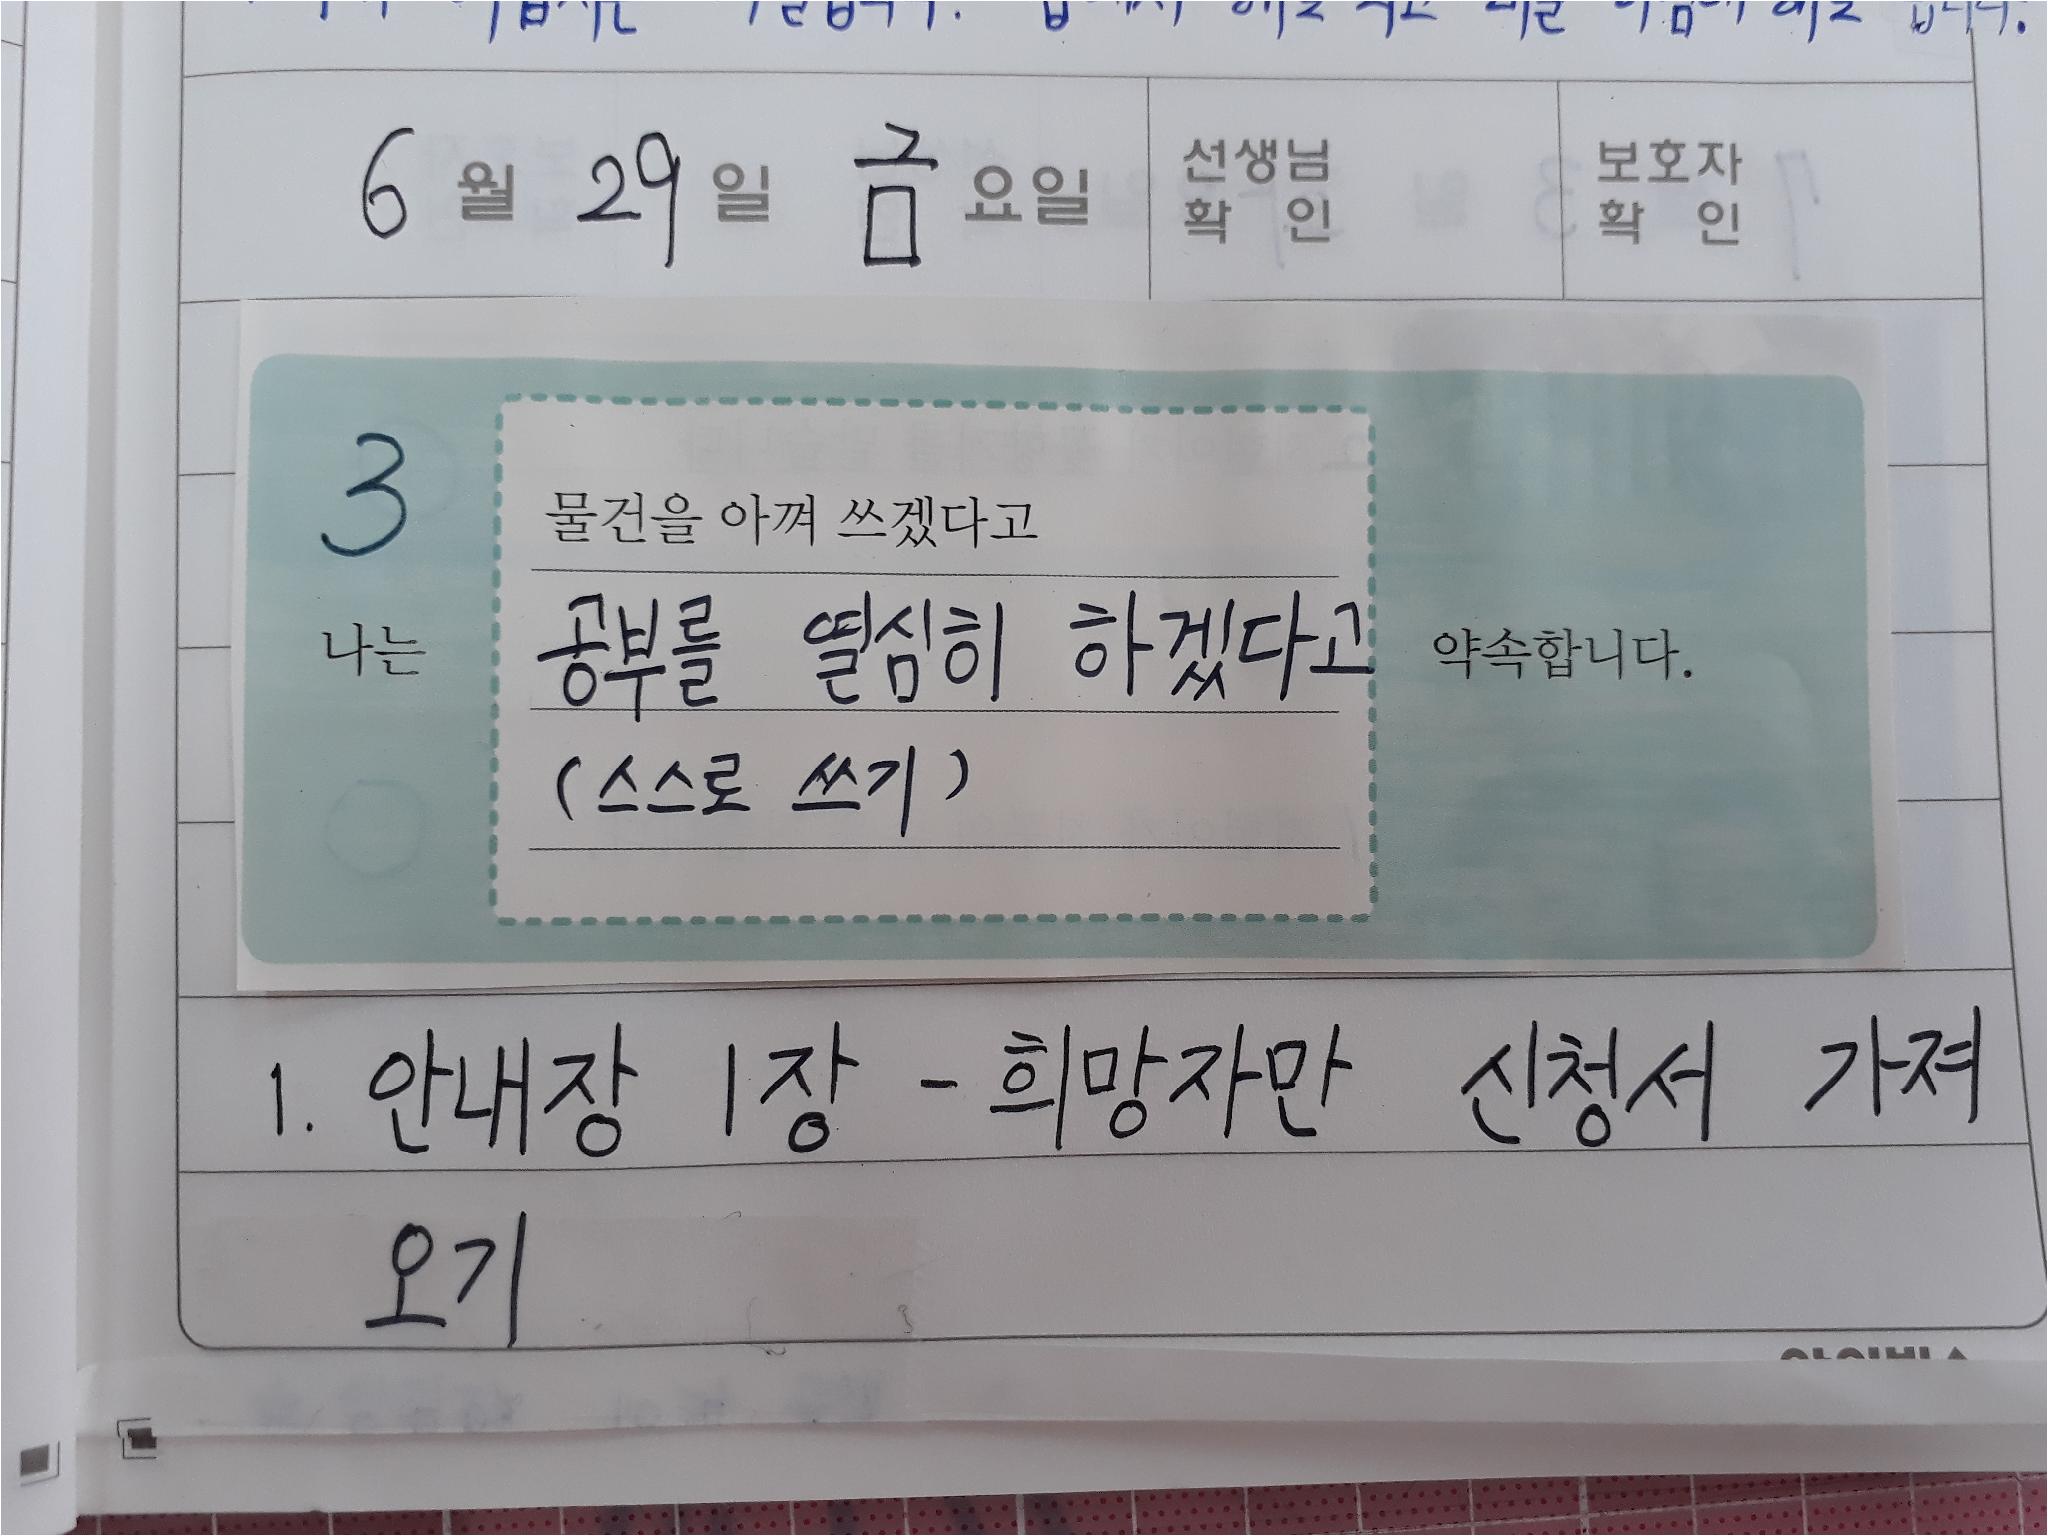 6 월 29 일 금 요일
선생님 확 인
보호자 확 인
3
물건을 아껴 쓰겠다고
나는 공부를 열심히 하겠다고 약속합니다.
(스스로 쓰기)
1. 안내장 1장 - 희망자만 신청서 가져
오기